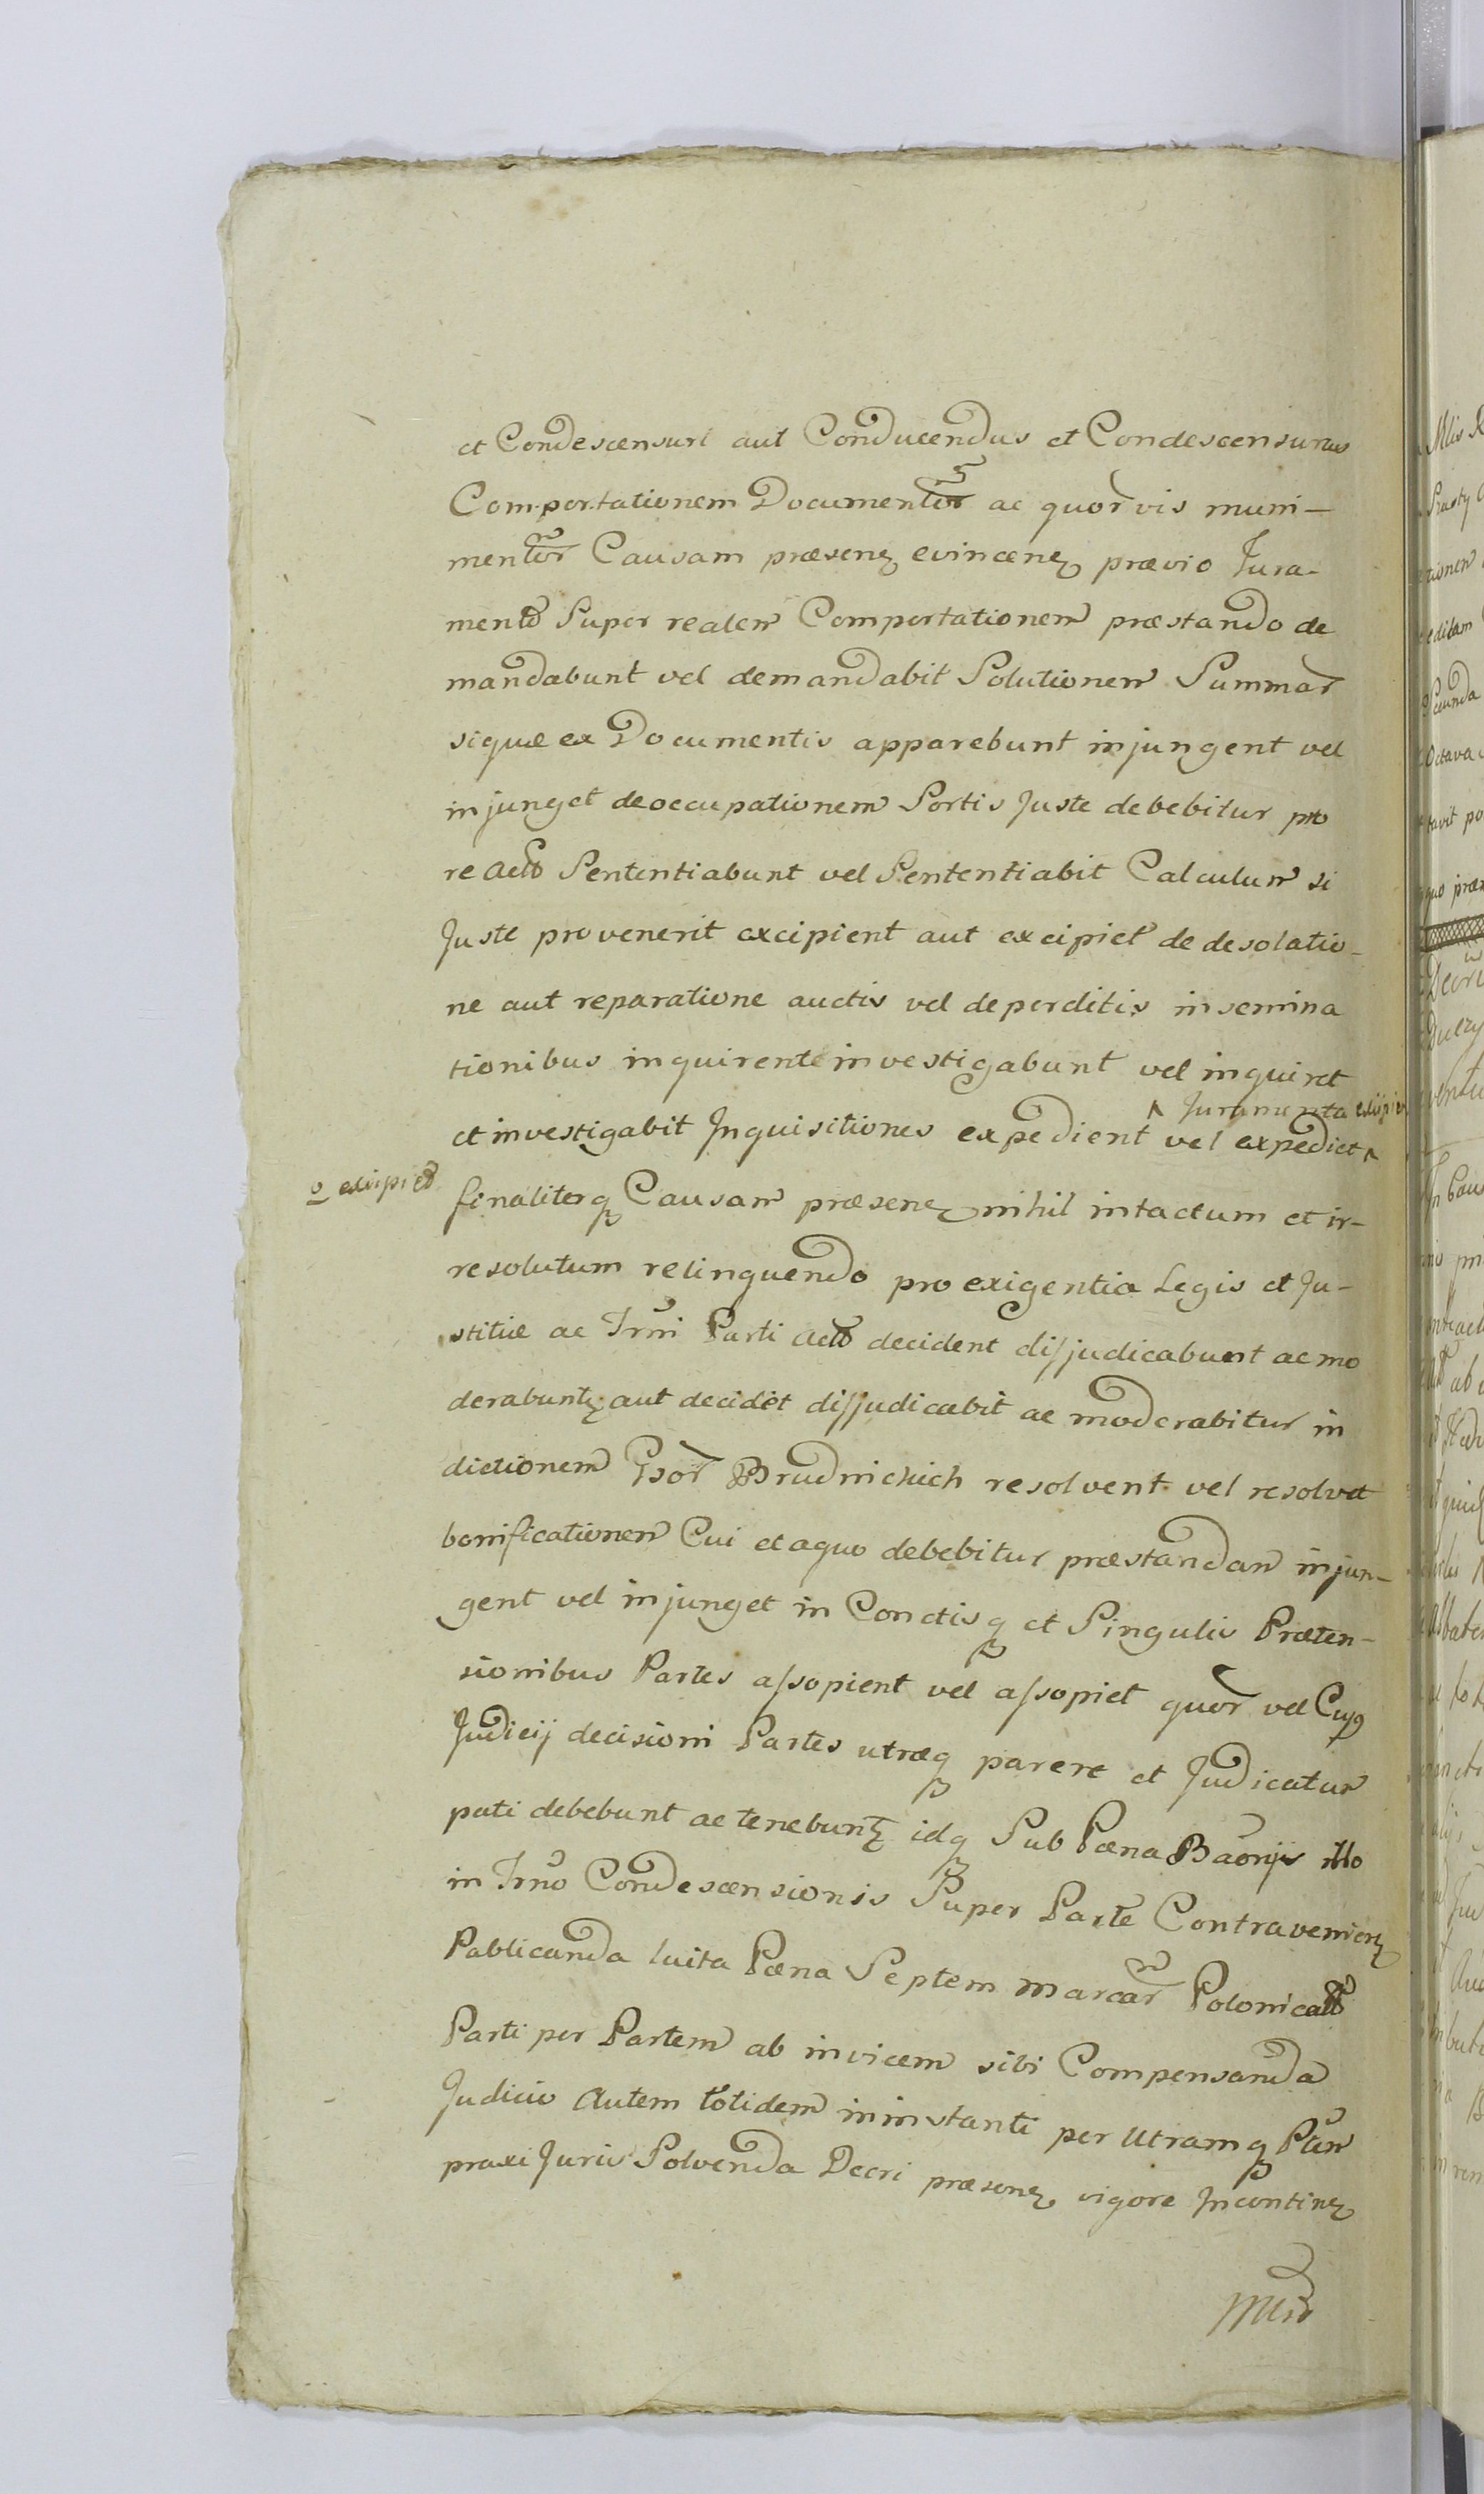 et Condescensuri aut Conducendus et Condescensurus
Comportationem Documentor ac quorvis muni-
mentor Causam præsenz evincenz prævio Jura-
mento Super realem Comportationem præstando de
mandabunt vel demandabit Solutionem Summar
siquæ ex Documentis apparebunt injungent vel
injunget deoccupationem Sortis Juste debebitur pro
re acto Sententiabunt vel Sententiabit Calculum si
Juste provenerit excipient aut excipiet de desolatio-
ne aut reparatione auctis vel deperditis insemina
tionibus inquirent investigabunt vel inquiret
^ Juramenta excipien
et investigabit Inquisitiones expedient vel expediet ^
excipiet
finaliterq Causam præsenz nihil intactum et ir-
resolutum relinquendo pro exigentia Legis et Ju-
stitiæ ac Trni Parti acto decident disjudicabunt ac mo
derabuntz aut decidet disjudicabit ac moderabitur in
dictionem Gsor Brudnickich resolvent vel resolvet
bonificationem Cui et aquo debebitur præstandam injun-
gent vel injunget in Conctisq et Singulis Præten-
sionibus Partes assopient vel assopiet quor vel Cujg
Judicij decisioni Partes utræq parere et Judicatum
pati debebunt ac tenebuntz idq Sub Pæna Baonjis illo
in Trno Condescensionis Super Parte Contravenienz
Publicanda luita Pæna Septem marcar Polonical
Parti per Partem ab invicem sibi Compensanda
Judicio Autem totidem ininstanti per Utramq Ptem
praxi Juris Solvenda Decri præsenz vigore Incontinz